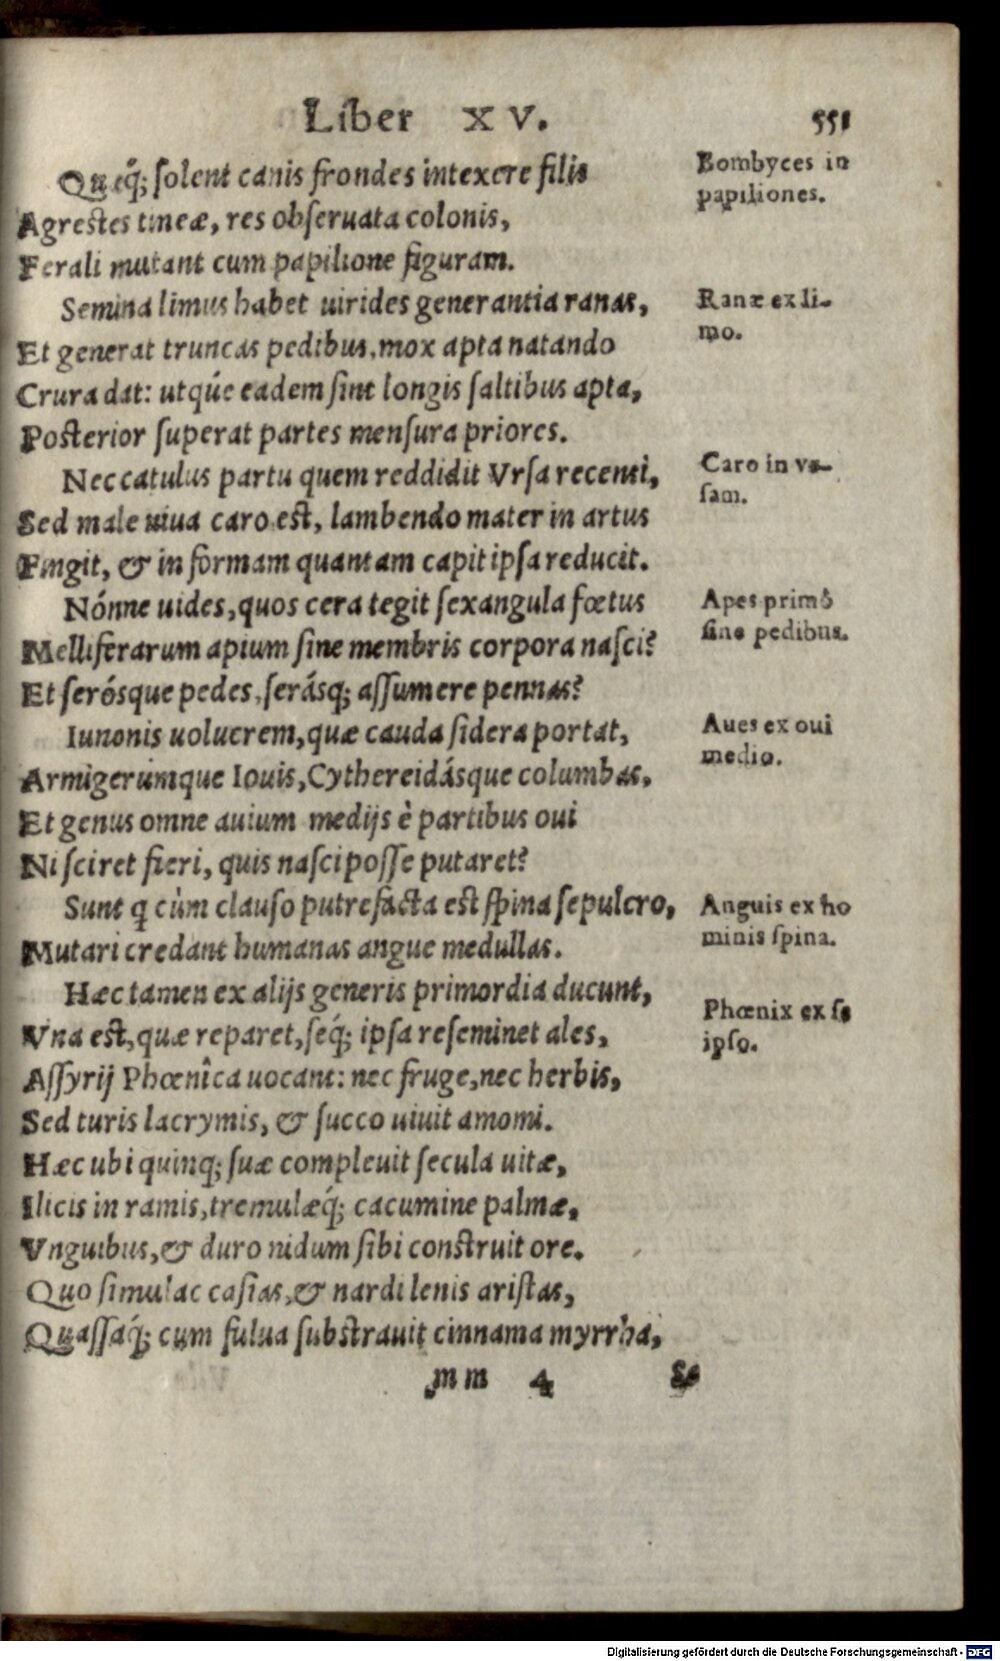 Liber XV. 551
Quæq́; ſolent canis frondes intexere filis
Agreſtes tineæ, res obſeruata colonis,
Ferali mutant cum papilione figuram.
Semina limus habet uirides generantia ranas,
Et generat truncas pedibus, mox apta natando
Crura dat: utq́ue eadem ſint longis ſaltibus apta,
Poſterior ſuperat partes menſura priores.
Nec catulus partu quem reddidit Vrſa recenti,
Sed male uiua caro eſt, lambendo mater in artus
Fingit, & in formam quantam capit ipſa reducit.
Nónne uides, quos cera tegit ſexangula fœtus
Melliferarum apium ſine membris corpora naſci?
Et ſerósque pedes, ſerásq; aſſumere pennas?
Iunonis uolucrem, quæ cauda ſidera portat,
Armigerúmque Iouis, Cythereidásque columbas,
Et genus omne auium medijs è partibus oui
Ni ſciret fieri, quis naſci poſſe putaret?
Sunt q cùm clauſo putrefacta eſt ſpina ſepulcro,
Mutari credant humanas angue medullas.
Hæc tamen ex alijs generis primordia ducunt,
Vna eſt, quæ reparet, ſeq́; ipſa reſeminet ales,
Aſſyrij Phœnîca uocant: nec fruge, nec herbis,
Sed turis lacrymis, & ſucco uiuit amomi.
Hæc ubi quinq; ſuæ compleuit ſecula uitæ,
Ilicis in ramis, tremulæq́; cacumine palmæ,
Vnguibus, & duro nidum ſibi conſtruit ore.
Quo ſimulac caſias, & nardi lenis ariſtas,
Quaſſaq́; cum fulua ſubſtrauit cinnama myrrha,
mm 4 Se
Bombyces in
papiliones.
Ranæ ex li-
mo.
Caro in vr-
ſam.
Apes primò
ſine pedibus.
Aues ex oui
medio.
Anguis ex ho
minis ſpina.
Phœnix ex ſe
ipſo.
Digitalisierung gefördert durch die Deutsche Forschungsgemeinschaft - DFG